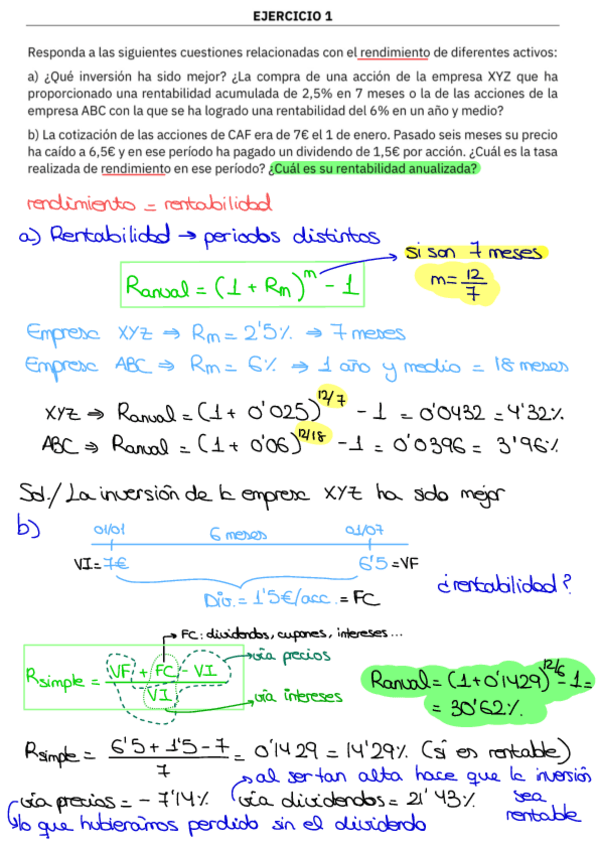 EJERCICIO 1
Responda a las siguientes cuestiones relacionadas con el rendimiento de diferentes activos:
a) ¿Qué inversión ha sido mejor? ¿La compra de una acción de la empresa XYZ que ha
proporcionado una rentabilidad acumulada de 2,5% en 7 meses o la de las acciones de la
empresa ABC con la que se ha logrado una rentabilidad del 6% en un año y medio?
b) La cotización de las acciones de CAF era de 7€ el 1 de enero. Pasado seis meses su precio
ha caído a 6,5€ y en ese período ha pagado un dividendo de 1,5€ por acción. ¿Cuál es la tasa
realizada de rendimiento en ese período? ¿Cuál es su rentabilidad anualizada?
rendimiento = rentabilidad
a) Rentabilidad → periodos distintos
si son 7 meses
m = 12/7
Ranual = (1 + Rm)^m - 1
Empresa XYZ ⇒ Rm = 2'5% ⇒ 7 meses
Empresa ABC ⇒ Rm = 6% ⇒ 1 año y medio = 18 meses
XYZ ⇒ Ranual = (1 + 0'025)^12/7 - 1 = 0'0432 = 4'32%
ABC ⇒ Ranual = (1 + 0'06)^12/18 - 1 = 0'0396 = 3'96%
Sol./ La inversión de la empresa XYZ ha sido mejor
b)
01/01 6 meses 01/07
VI = 7€ 6'5 = VF
Div. = 1'5€/acc. = FC
¿rentabilidad?
FC: dividendos, cupones, intereses...
vía precios
Rsimple = (VF + FC - VI) / VI
vía intereses
Ranual = (1 + 0'1429)^12/6 - 1 =
= 30'62%
Rsimple = (6'5 + 1'5 - 7) / 7 = 0'1429 = 14'29% (sí es rentable)
al ser tan alta hace que la inversión
sea
rentable
vía precios = - 7'14% vía dividendos = 21'43%
lo que hubieramos perdido sin el dividendo